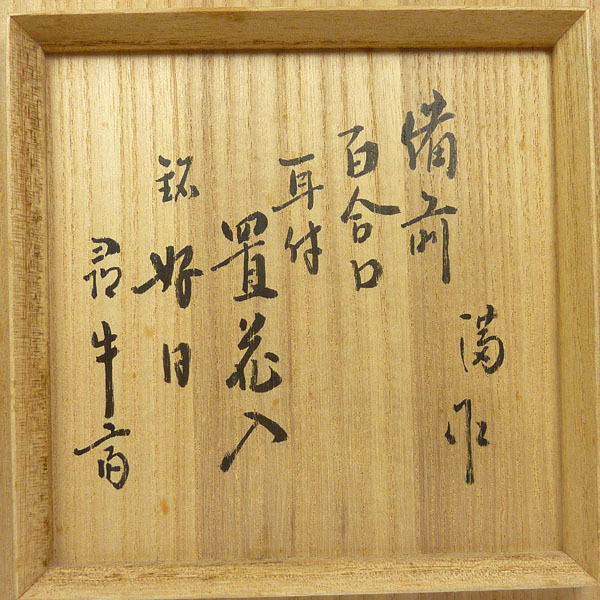 備前
満作
百合口
耳付
置花入
銘 好日
尋牛斎